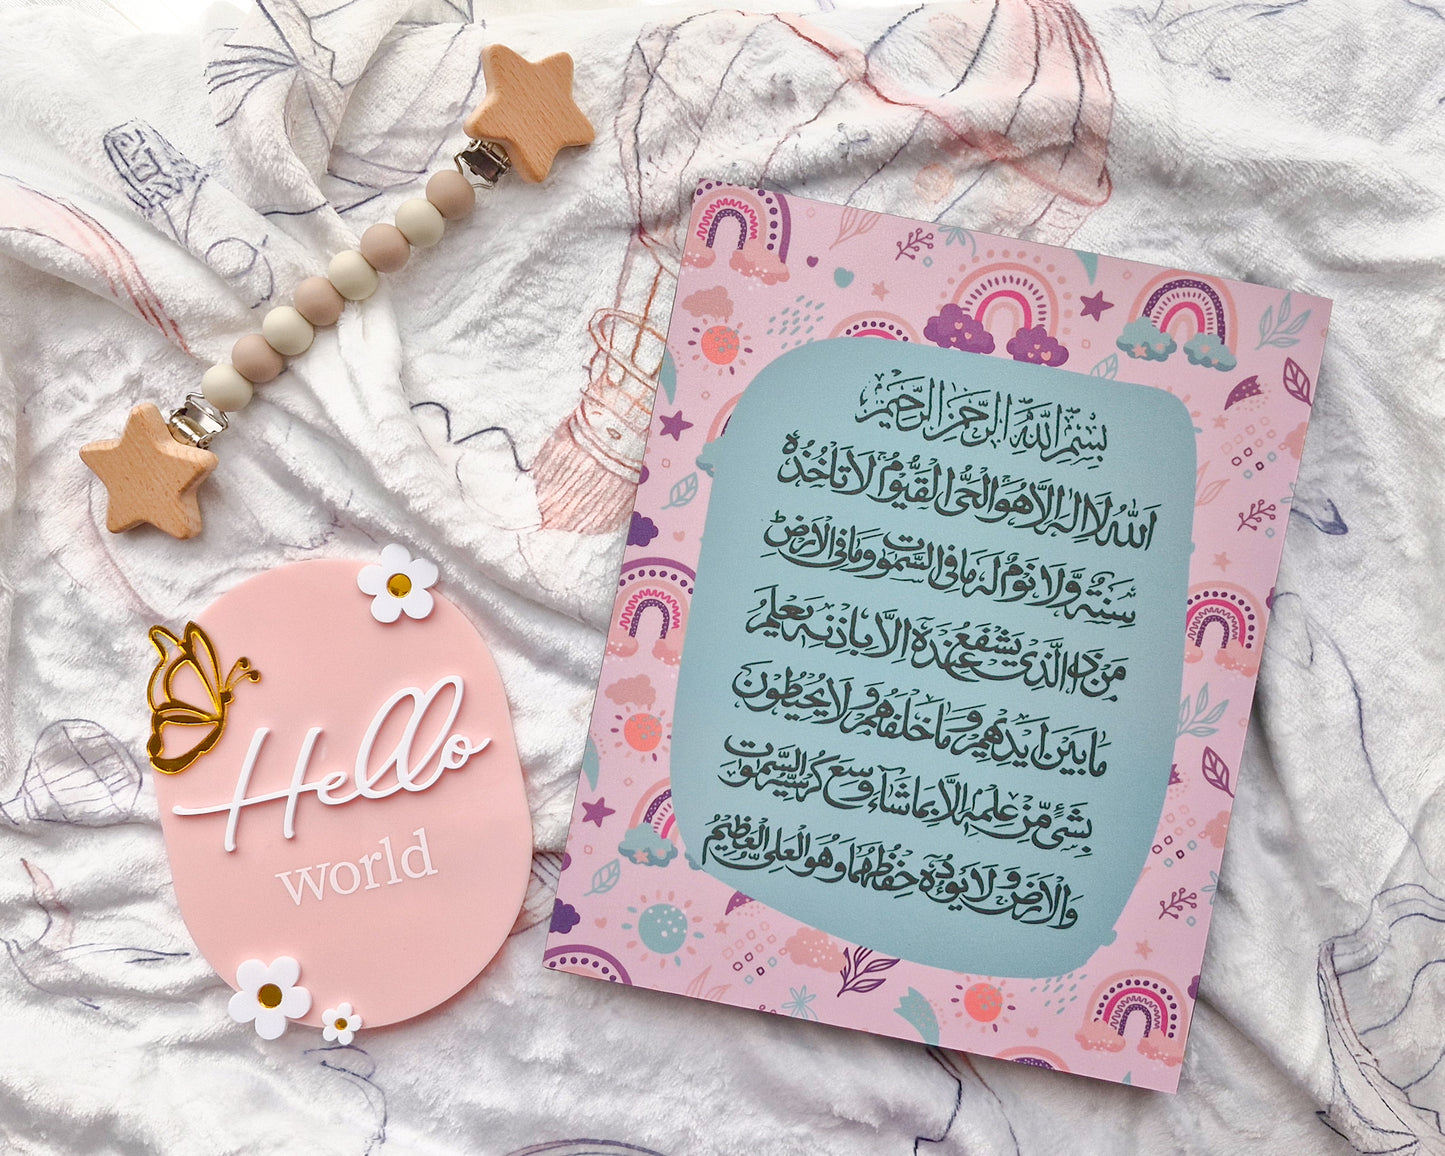 Hello
world
بِسْمِ اللّٰهِ الرَّحْمٰنِ الرَّحِيْمِ
اَللّٰهُ لَا اِلٰهَ اِلَّا هُوَ الْحَىُّ الْقَيُّوْمُ لَا تَاْخُذُهٗ
سِنَةٌ وَّلَا نَوْمٌ لَهٗ مَا فِى السَّمٰوٰتِ وَمَا فِى الْاَرْضِ
مَنْ ذَا الَّذِىْ يَشْفَعُ عِنْدَهٗ اِلَّا بِاِذْنِهٖ يَعْلَمُ
مَا بَيْنَ اَيْدِيْهِمْ وَمَا خَلْفَهُمْ وَلَا يُحِيْطُوْنَ
بِشَىْءٍ مِّنْ عِلْمِهٖ اِلَّا بِمَا شَآءَ وَسِعَ كُرْسِيُّهُ السَّمٰوٰتِ
وَالْاَرْضَ وَلَا يَؤُدُهٗ حِفْظُهُمَا وَهُوَ الْعَلِىُّ الْعَظِيْمُ